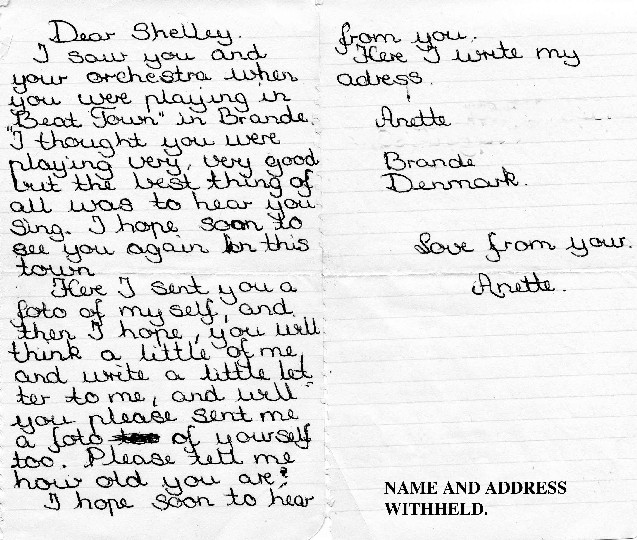 Dear Shelley.
I saw you and
your orchestra when
you were playing in
"Beat Town" in Brande.
"I thought you were
playing very, very good
but the best thing of
all was to hear you
sing. I hope soon to
see you again in this
town
Here I sent you a
foto of myself, and
then I hope, you will
think a little of me,
and write a little let
ter to me, and will
you please sent me
a foto of yourself
too. Please tell me
how old you are?
I hope soon to hear
from you.
Here I write my
adress.
Anette
Brande
Denmark.
Love from your.
Anette.
NAME AND ADDRESS
WITHHELD.